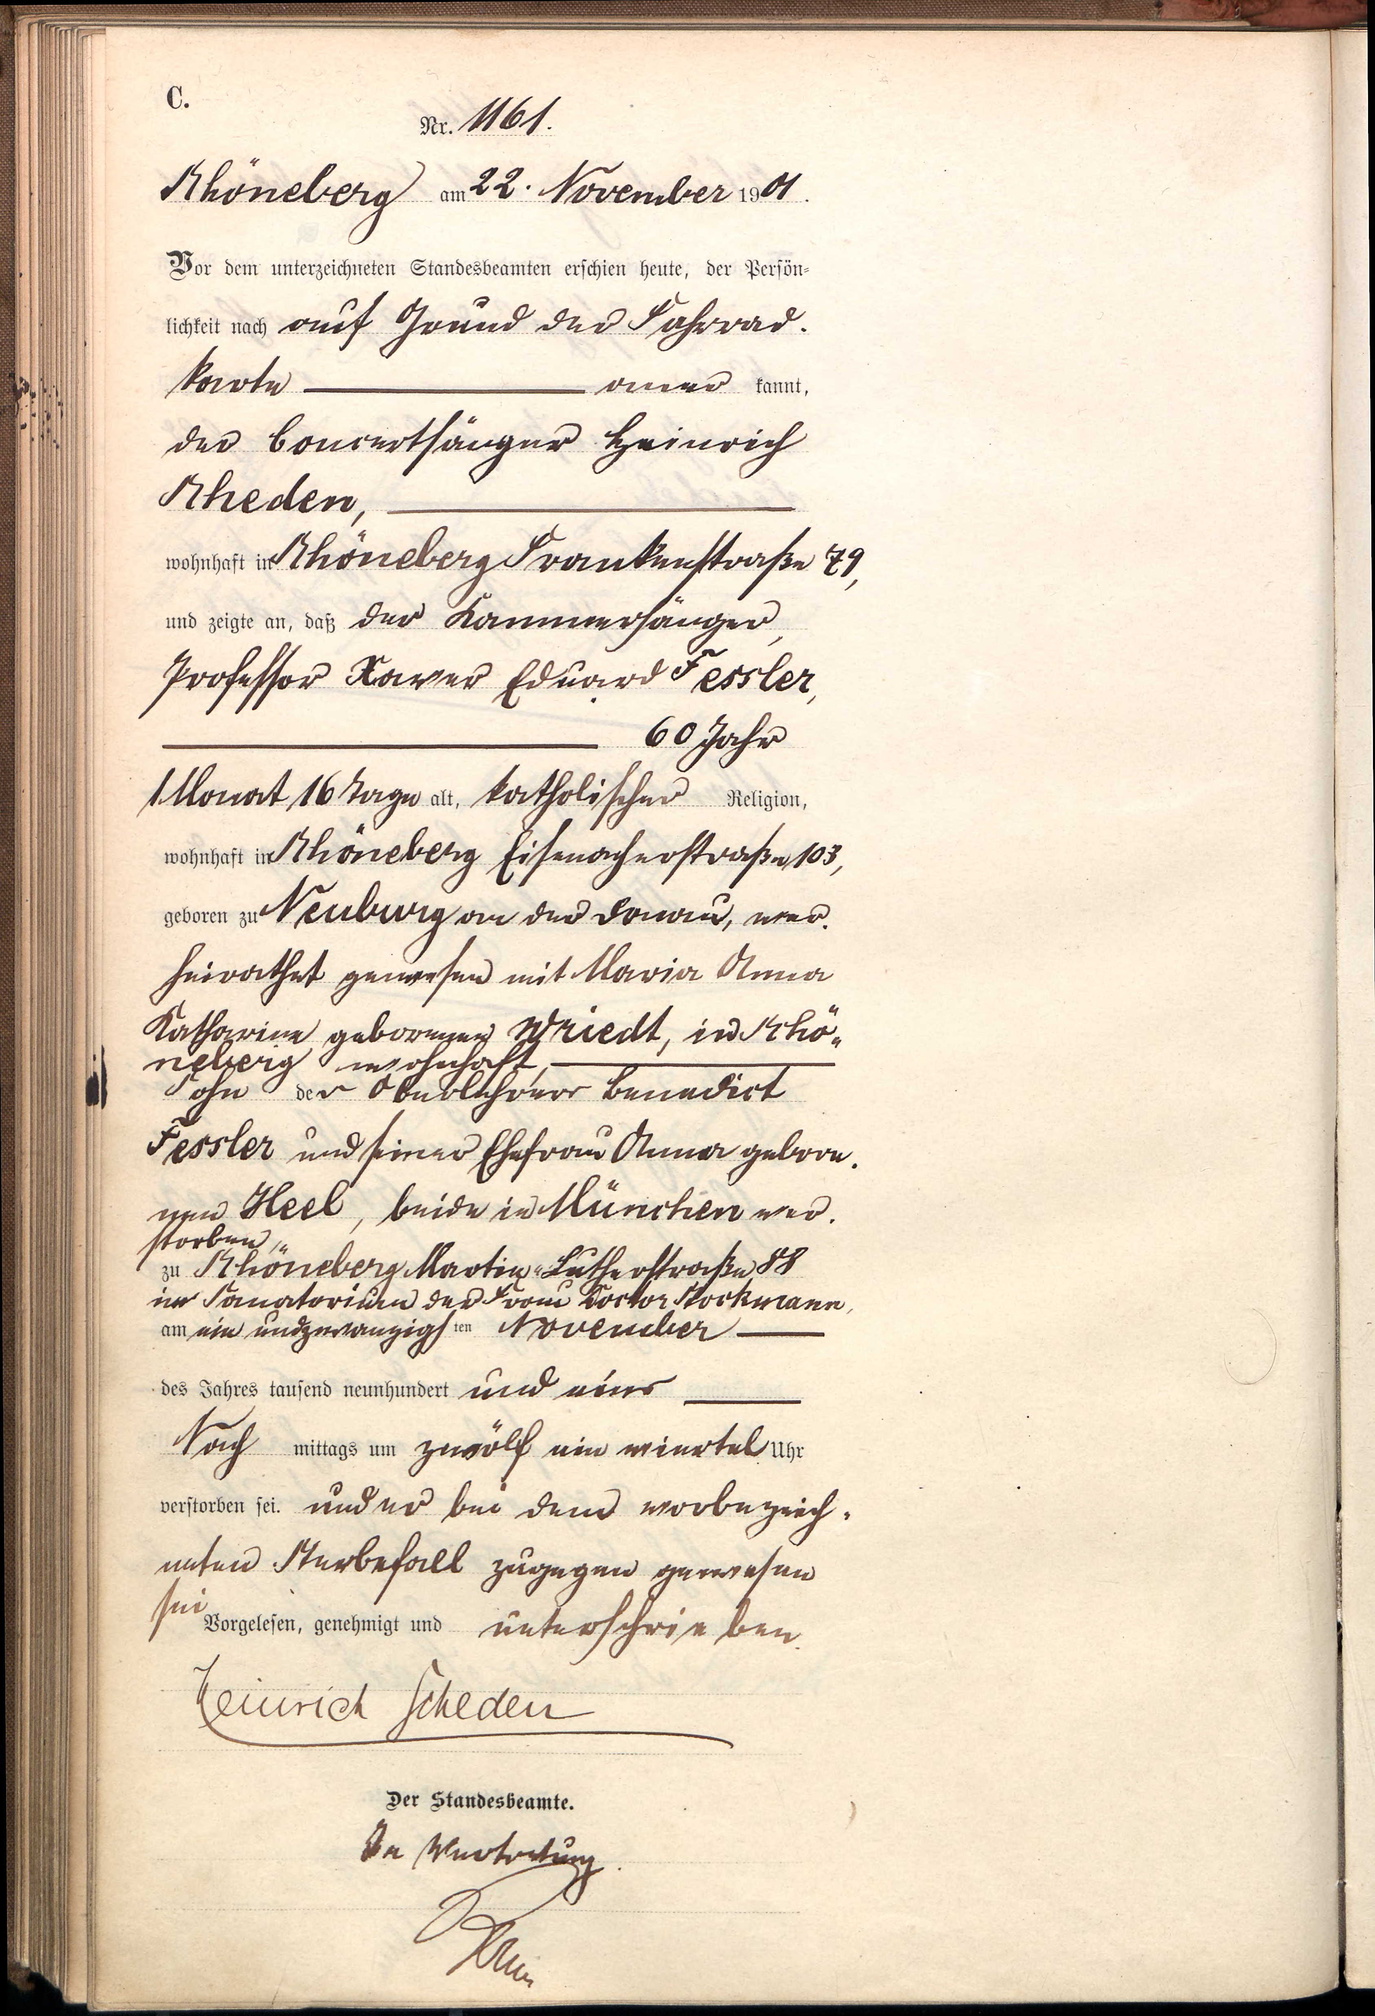 C.
Nr. 1161.
Schöneberg am 22. November 1901.
Vor dem unterzeichneten Standesbeamten erschien heute, der Persön-
lichkeit nach auf Grund der Fahrrad-
karte aner kannt,
der Concertsänger Heinrich
Scheden,
wohnhaft in Schöneberg Frankenstraße 79,
und zeigte an, daß der Kammersänger,
Professor Xaver Eduard Fessler,
60 Jahr
1 Monat 16 Tage alt, katholischer Religion,
wohnhaft in Schöneberg Eisenacherstraße 103,
geboren zu Neuburg an der Donau, ver-
heirathet gewesen mit Maria Anna
Katharine geborenen Wriedt, in Schö-
neberg wohnhaft,
Sohn des Oberlehrers Benedict
Fessler und seiner Ehefrau Anna gebore-
nen Heel, beide in München ver-
storben,
zu Schöneberg Martin-Lutherstraße 88
im Sanatorium der Frau Doctor Stockmann,
am ein undzwanzigsten November
des Jahres tausend neunhundert und eins
Nach mittags um zwölf ein viertel Uhr
verstorben sei. und er bei dem vorbezeich-
neten Sterbefall zugegen gewesen
sei
Vorgelesen, genehmigt und unterschrieben
Heinrich Scheden
Der Standesbeamte.
In Vertretung.